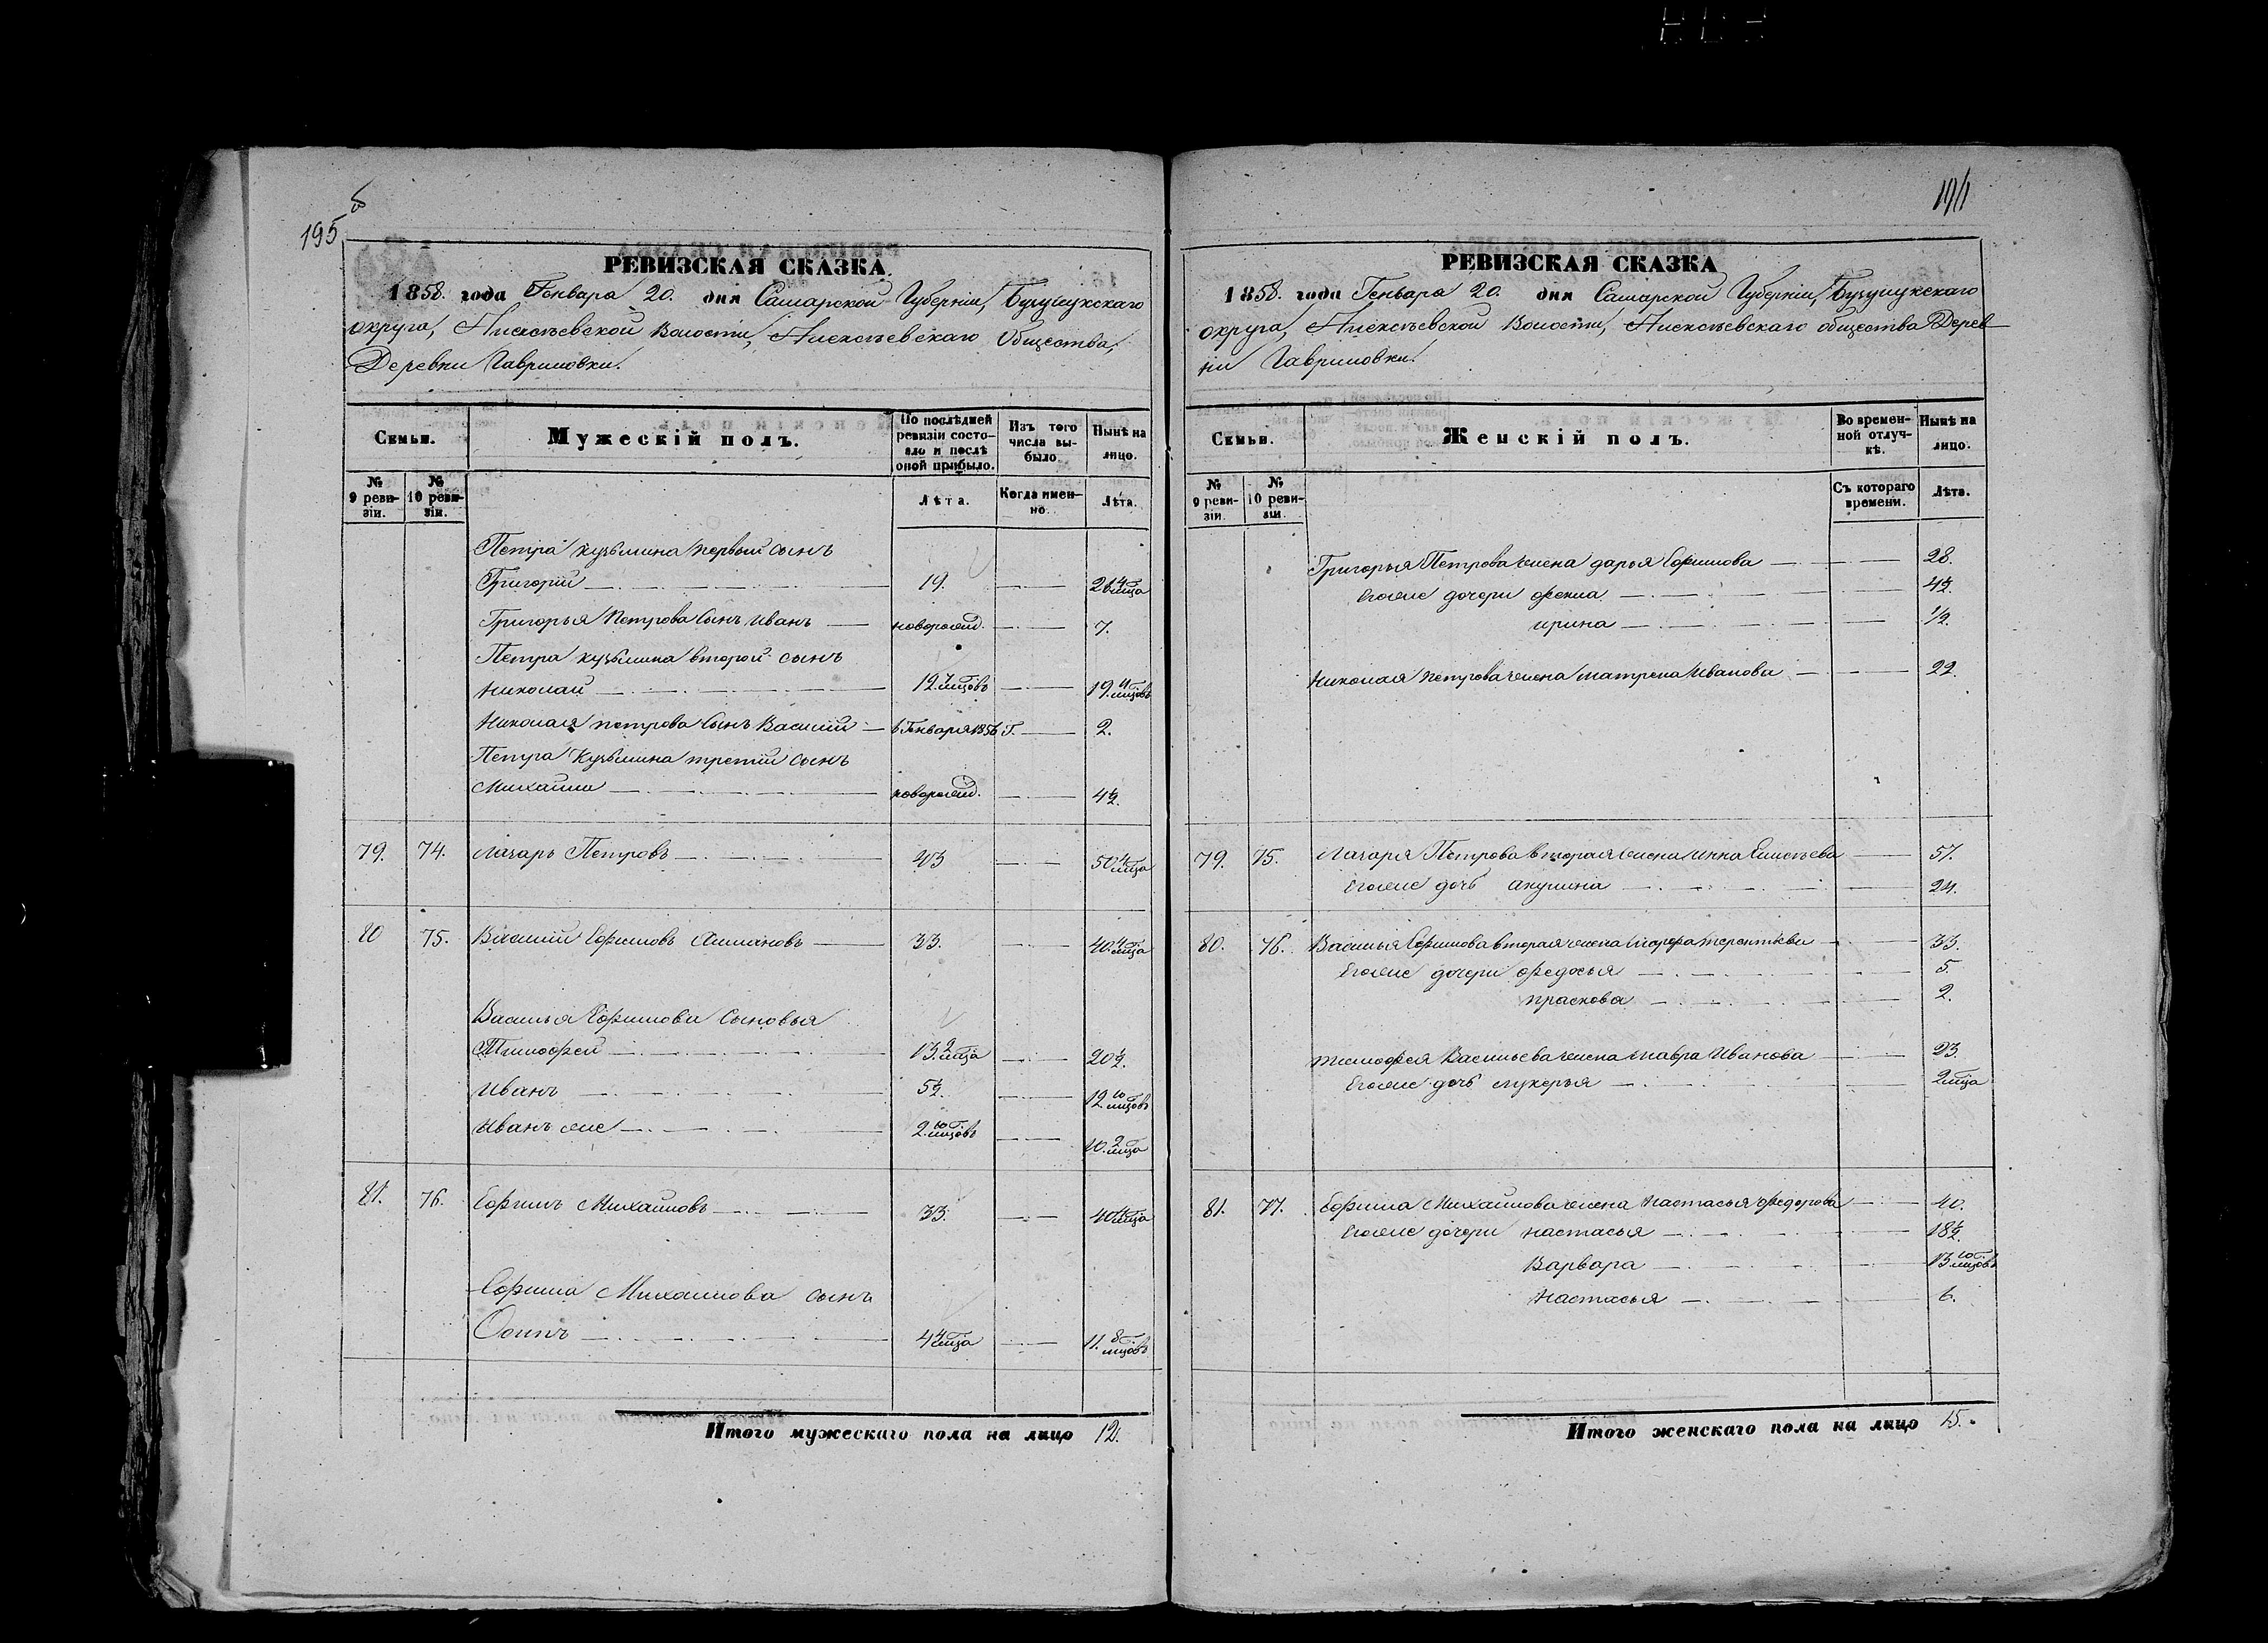 195 об
РЕВИЗСКАЯ СКАЗКА
1858. года Генваря 20. дня Самарской Губерніи, Бузулукскаго
округа, Алексѣевской Волости, Алексѣевскаго Общества,
Деревни Гавриловки.
Семьи.
Мужескій полъ.
По послѣдней ревизіи состояло и послѣ оной прибыло.
Изъ того числа выбыло.
Нынѣ на лицо.
№ 9 ревизіи.
№ 10 ревизіи.
Лѣта.
Когда именно.
Лѣта.
Петра Кузьмина первый сынъ
Григорій 19.
Григорья Петрова сынъ Иванъ новорожд. 7.
Петра Кузьмина второй сынъ
Николай 12. мцовъ 19. мцовъ
Николая Петрова сынъ Василій Генваря 1856 г. 2.
Петра Кузьмина третій сынъ
Михайла новорожд. 4½.
79. 74. Лазарь Петровъ 43 50 4 мца
80 75. Василій Ефимовъ 33. 40 4 мца
Василья Ефимова сыновья
Тимофей 13. 2 мца 20½.
Иванъ 5½. 12 10 мцовъ
Иванъ же 2. 10 мцовъ 10. 2 мца
81. 76. Ефимъ Михайловъ 33. 40 4 мца
Ефима Михайлова сынъ
Осипъ 4 4 мца 11. 8 мцовъ
Итого мужескаго пола на лицо 12.
РЕВИЗСКАЯ СКАЗКА
1858. года Генваря 20. дня Самарской Губерніи, Бузулукскаго
округа, Алексѣевской Волости, Алексѣевскаго общества Дерев
ни Гавриловки.
Семьи.
Женскій полъ.
Во временной отлучкѣ.
Нынѣ на лицо.
№ 9 ревизіи.
№ 10 ревизіи.
Съ котораго времени.
Лѣта.
Григорья Петрова жена Дарья Ефимова 28.
Егоже дочери Фекла 4½.
Ирина 1/2.
Николая Петрова жена Матрена Иванова 22.
79. 75. Лазаря Петрова вторая жена Анна Елисѣева 51.
Егоже дочь Акулина 24.
80. 76. Василья Ефимова вторая жена Марфа Терентьева 33.
Егоже дочери Федосья 5.
Прасковья 2.
Тимофея Васильева жена Мавра Иванова 23.
Егоже дочь Лукерья 2 мца
81. 77. Ефима Михайлова жена Настасья Федорова 40.
Егоже дочери Настасья 18½.
Варвара 13. 10 мцовъ
Настасья 6.
Итого женскаго пола на лицо 15.